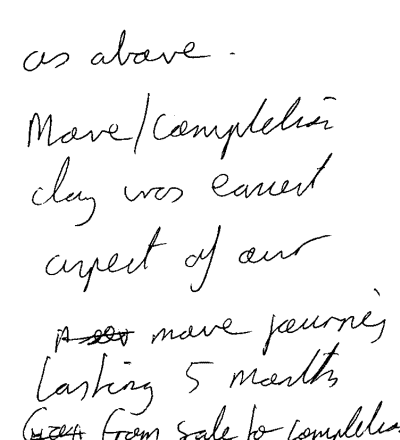 as above.
Move/Completion
day was easiest
aspect of our
move journey
lasting 5 months
from sale to completion